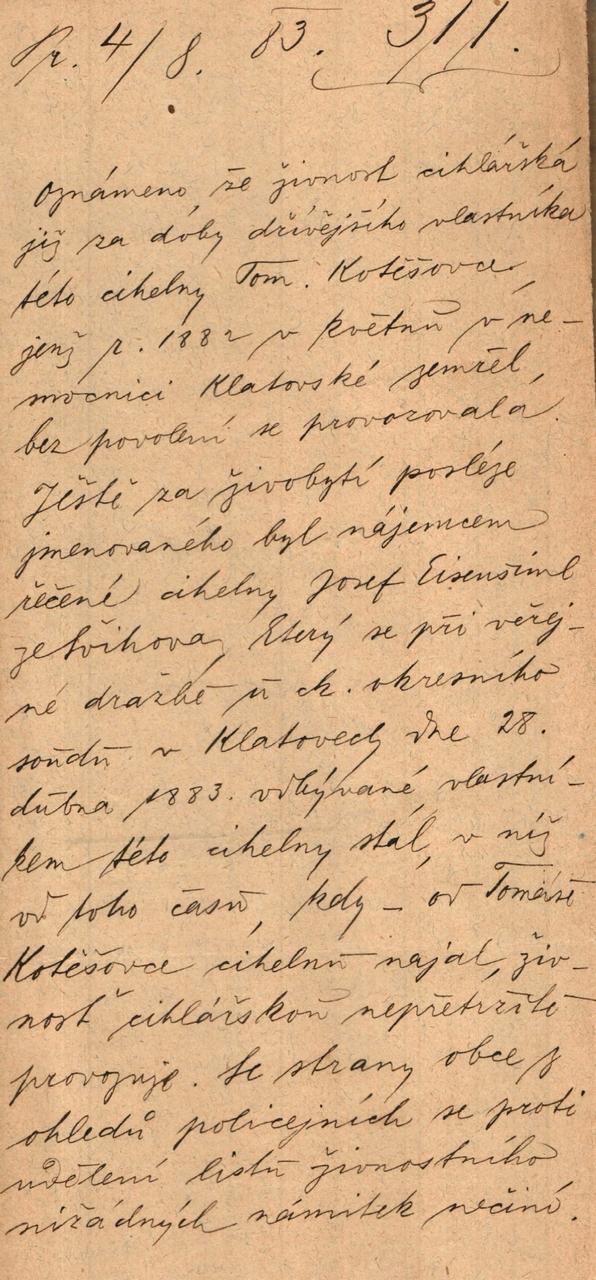 Pr. 4/8. 83. 311.
Oznámeno, že živnost cihlářská
již za dóby dřívějšího vlastníka
této cihelny Tom. Kotěšovce
jenž r. 1882 v květnu v ne-
mocnici Klatovské zemřel,
bez povolení se provozovala.
Ještě za živobytí posléze
jmenovaného byl nájemcem
řečené cihelny Josef Eisenšiml
ze Švihova, který se při veřej-
né dražbě u ck. okresního
soudu v Klatovech dne 28.
dubna 1883. odbývané, vlastní-
kem této cihelny stál, v níž
od toho času, kdy – od Tomáše
Kotěšovce cihelnu najal, živ-
nosť cihlářskou nepřetržitě
provozuje. Se strany obce z
ohledů policejních se proti
udělení listu živnostního
nižádných námitek nečiní.